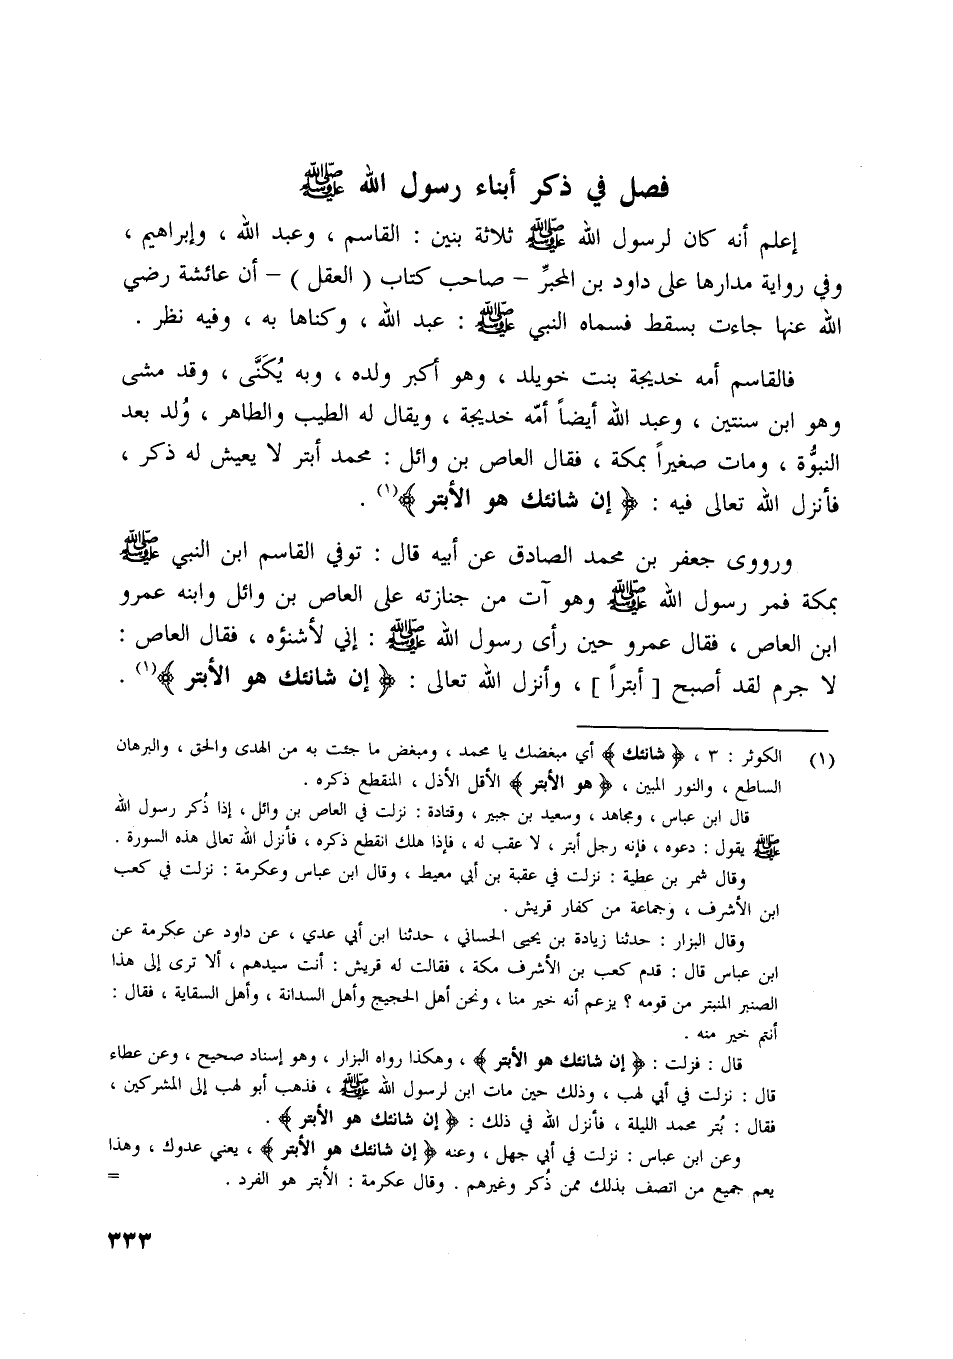 فصل في ذكر أبناء رسول الله ﷺ
إعلم أنه كان لرسول الله ﷺ ثلاثة بنين : القاسم ، وعبد الله ، وإبراهيم ،
وفي رواية مدارها على داود بن المحبرِّ – صاحب كتاب ( العقل ) – أن عائشة رضي
الله عنها جاءت بسقط فسماه النبي ﷺ : عبد الله ، وكناها به ، وفيه نظر .
فالقاسم أمه خديجة بنت خويلد ، وهو أكبر ولده ، وبه يُكَنَّى ، وقد مشى
وهو ابن سنتين ، وعبد الله أيضاً أمّه خديجة ، ويقال له الطيب والطاهر ، وُلد بعد
النبوُّة ، ومات صغيراً بمكة ، فقال العاص بن وائل : محمد أبتر لا يعيش له ذكر ،
فأنزل الله تعالى فيه : ﴿ إن شانئك هو الأبتر ﴾(١) .
ورووى جعفر بن محمد الصادق عن أبيه قال : توفي القاسم ابن النبي ﷺ
بمكة فمر رسول الله ﷺ وهو آت من جنازته على العاص بن وائل وابنه عمرو
ابن العاص ، فقال عمرو حين رأى رسول الله ﷺ : إني لأشنؤه ، فقال العاص :
لا جرم لقد أصبح [ أبتراً ] ، وأنزل الله تعالى : ﴿ إن شانئك هو الأبتر ﴾(١) .
(١) الكوثر : ٣ ، ﴿ شانئك ﴾ أي مبغضك يا محمد ، ومبغض ما جئت به من الهدى والحق ، والبرهان
الساطع ، والنور المبين ، ﴿ هو الأبتر ﴾ الأقل الأذل ، المنقطع ذكره .
قال ابن عباس ، ومجاهد ، وسعيد بن جبير ، وقتادة : نزلت في العاص بن وائل ، إذا ذُكر رسول الله
ﷺ يقول : دعوه ، فإنه رجل أبتر ، لا عقب له ، فإذا هلك انقطع ذكره ، فأنزل الله تعالى هذه السورة .
وقال شمر بن عطية : نزلت في عقبة بن أبي معيط ، وقال ابن عباس وعكرمة : نزلت في كعب
ابن الأشرف ، وجماعة من كفار قريش .
وقال البزار : حدثنا زيادة بن يحيى الحساني ، حدثنا ابن أبي عدي ، عن داود عن عكرمة عن
ابن عباس قال : قدم كعب بن الأشرف مكة ، فقالت له قريش : أنت سيدهم ، ألا ترى إلى هذا
الصنبر المنبتر من قومه ؟ يزعم أنه خير منا ، ونحن أهل الحجيج وأهل السدانة ، وأهل السقاية ، فقال :
أنتم خير منه .
قال : فنزلت : ﴿ إن شانئك هو الأبتر ﴾ ، وهكذا رواه البزار ، وهو إسناد صحيح ، وعن عطاء
قال : نزلت في أبي لهب ، وذلك حين مات ابن لرسول الله ﷺ ، فذهب أبو لهب إلى المشركين ،
فقال : بُتر محمد الليلة ، فأنزل الله في ذلك : ﴿ إن شانئك هو الأبتر ﴾ .
وعن ابن عباس : نزلت في أبي جهل ، وعنه ﴿ إن شانئك هو الأبتر ﴾ ، يعني عدوك ، وهذا
يعم جميع من اتصف بذلك ممن ذُكر وغيرهم . وقال عكرمة : الأبتر هو الفرد . =
٣٣٣